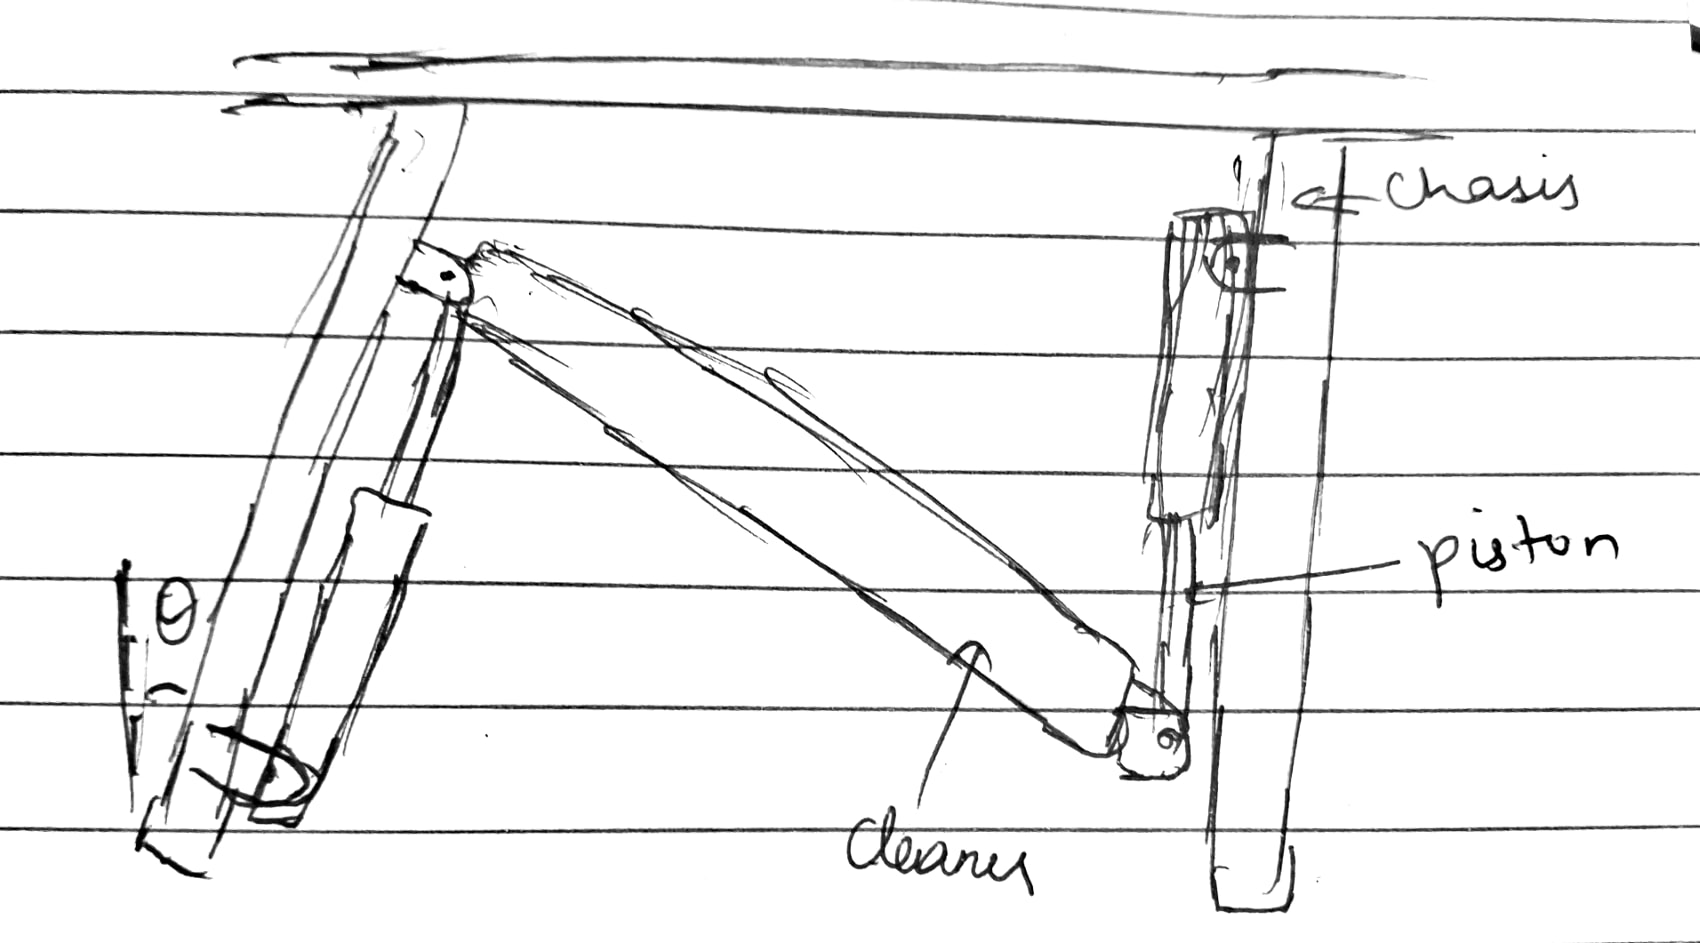 chasis
piston
θ
cleaner